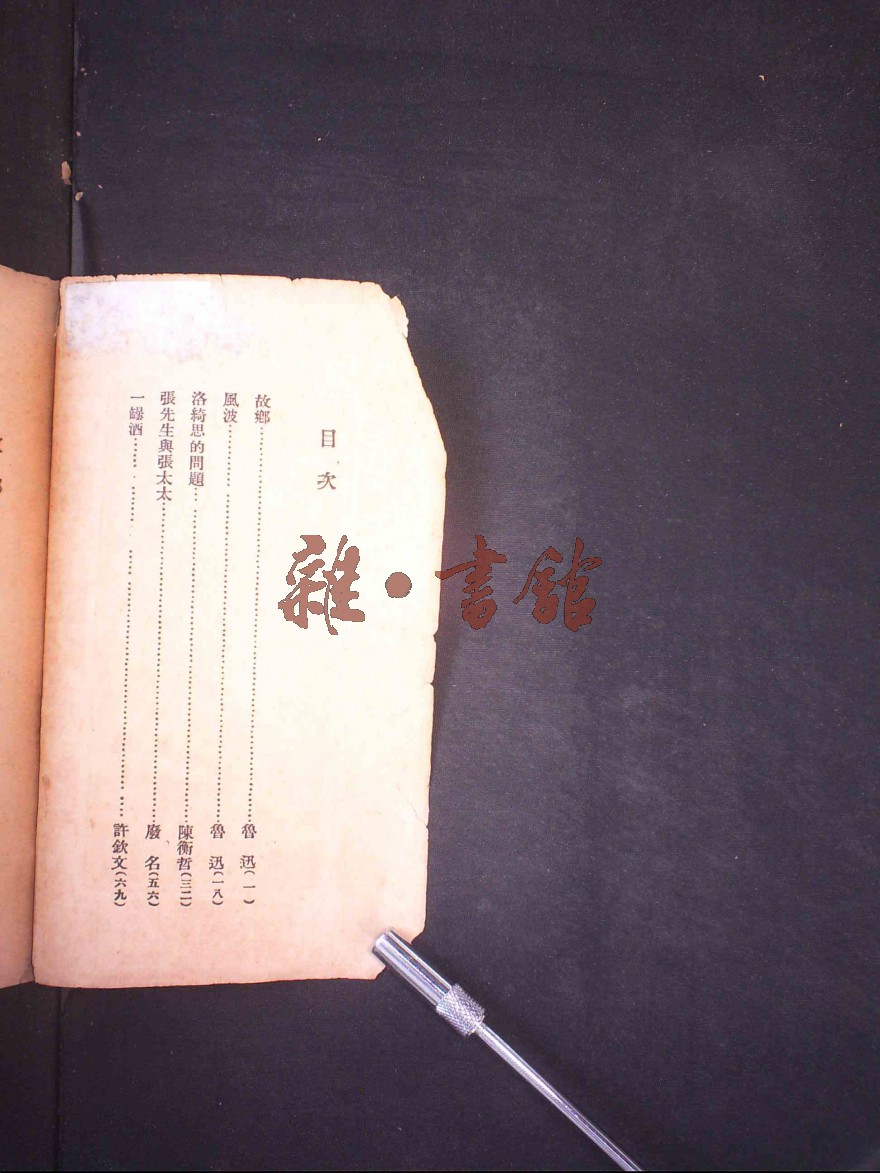 目次
故鄉……魯迅(一)
風波……魯迅(一八)
洛綺思的問題……陳衡哲(三二)
張先生與張太太……廢名(五六)
一罈酒……許欽文(六九)
雜·書館